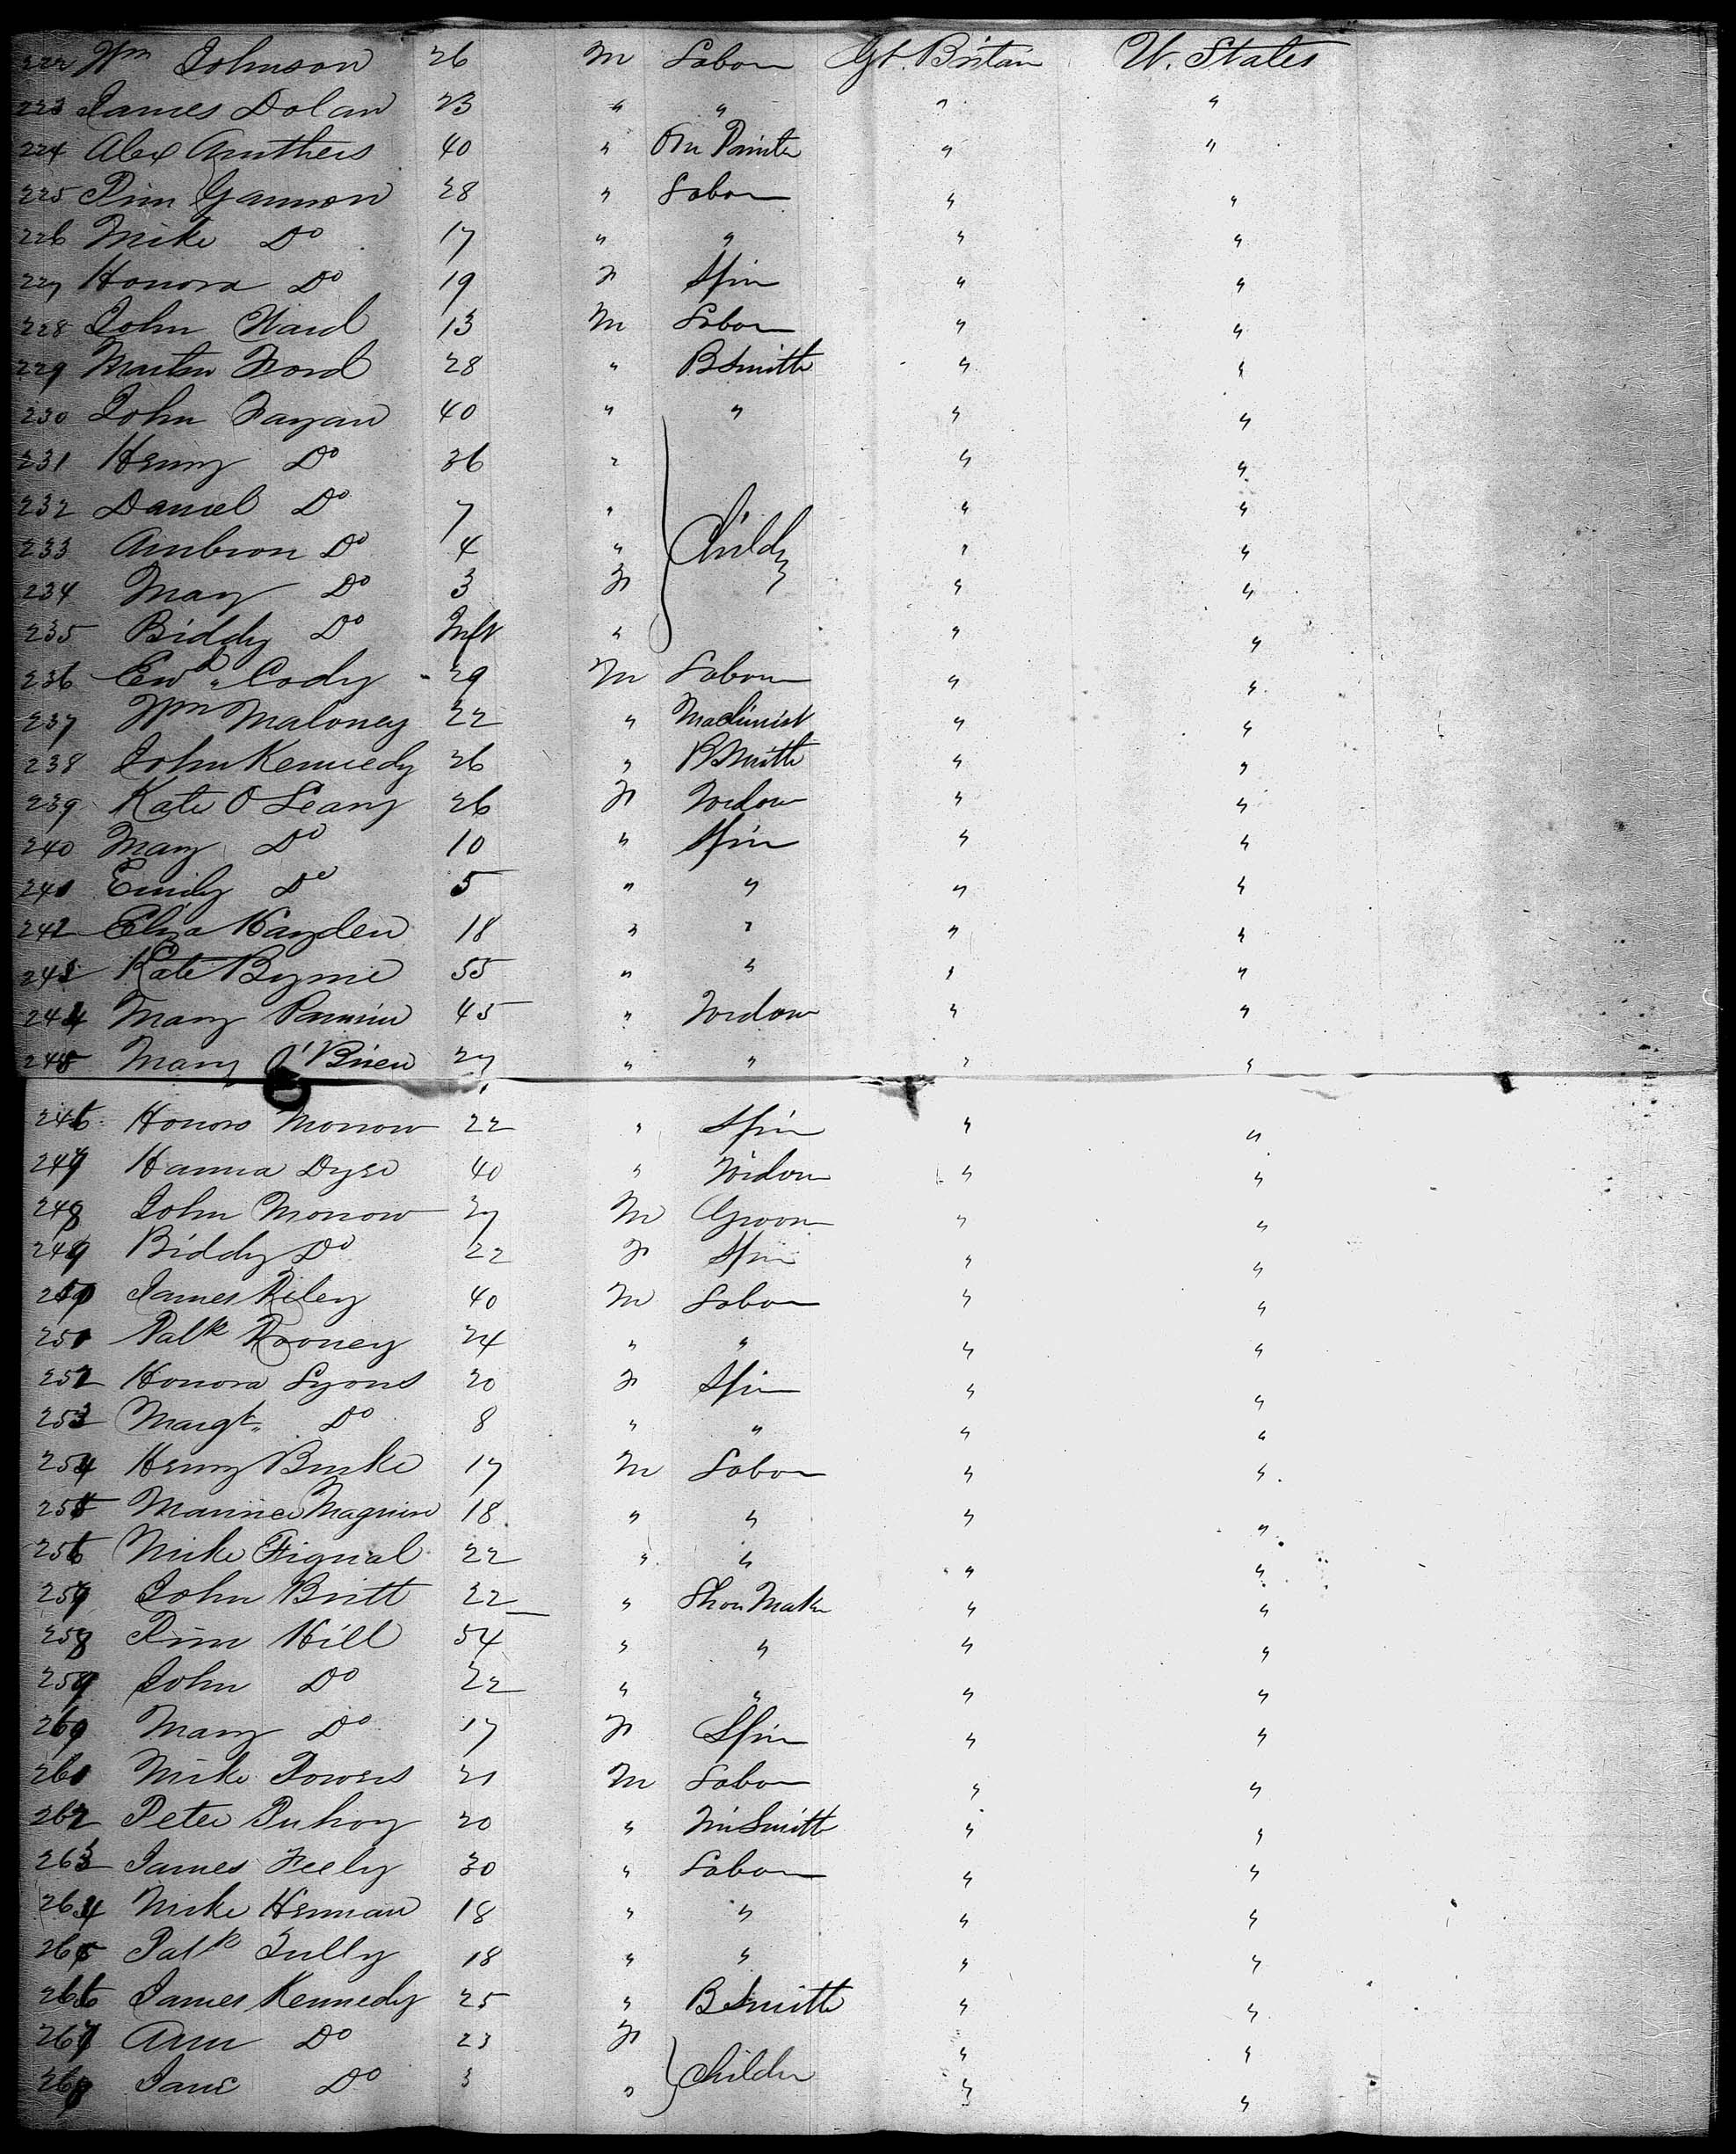 222 Wm Johnson 26 M Labor Gt. Britain U. States
223 James Dolan 23 " " " "
224 Alex Anuthers 40 " Painter " "
225 Gannon 28 " Labor " "
226 Mike Do 17 " " " "
227 Honora Do 19 F Spin " "
228 John Ward 13 M Labor " "
229 Martin Ford 28 " BSmith " "
230 John Fagan 40 " " " "
231 Henry Do 36 " " "
232 Daniel Do 7 " " "
233 Do 4 " Childn " "
234 Mary Do 3 F " "
235 Biddy Do Inft " " "
236 Ewd Cody 29 M Labor " "
237 Wm Maloney 22 " Machinist " "
238 John Kennedy 26 " BSmith " "
239 Kate O Leary 26 F Widow " "
240 Mary Do 10 " Spin " "
241 Emily Do 5 " " " "
242 Eliza Hayden 18 " " " "
243 Kate Byrne 55 " " " "
244 Mary 45 " Widow " "
245 Mary O'Brien 27 " " " "
246 Honora Morrow 22 " Spin " "
247 Hanna 40 " Widow " "
248 John Morrow 27 M Groom " "
249 Biddy Do 22 F Spin " "
250 James Riley 40 M Labor " "
251 Patk Rooney 24 " " " "
252 Honora Lyons 20 F Spin " "
253 Margt Do 8 " " " "
254 Henry Burke 17 M Labor " "
255 Maurice Maguire 18 " " " "
256 Mike Fignal 22 " " " "
257 John Britt 22 " Shoe Maker " "
258 Hill 54 " " " "
259 John Do 22 " " " "
260 Mary Do 17 F Spin " "
261 Mike Powers 21 M Labor " "
262 Peter 20 " TinSmith " "
263 James Feely 30 " Labor " "
264 Mike Hernan 18 " " " "
265 Patk Tully 18 " " " "
266 James Kennedy 25 " BSmith " "
267 Ann Do 23 F " "
268 Jane Do 3 " Childn " "